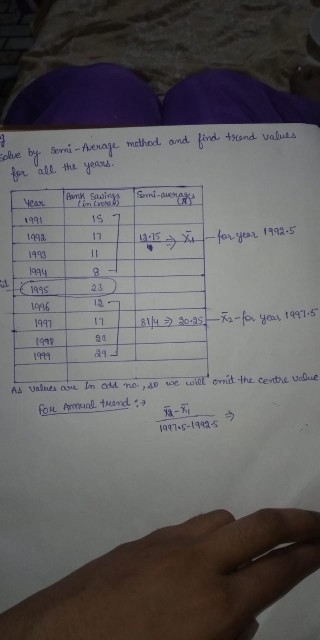 Solve by Semi-Average method and find trend values
for all the years.
Year Bank Savings (in Crores) Semi-average (x̄)
1991 15
1992 17 12.75 ⇒ x̄₁ - for year 1992.5
1993 11
1994 8
1995 23
1996 12
1997 17 81/4 ⇒ 20.25 x̄₂ - for year 1997.5
1998
1999
As values are in odd no., so we will omit the centre value
For Annual trend :→
x̄₂ - x̄₁ ⇒
1997.5-1992.5